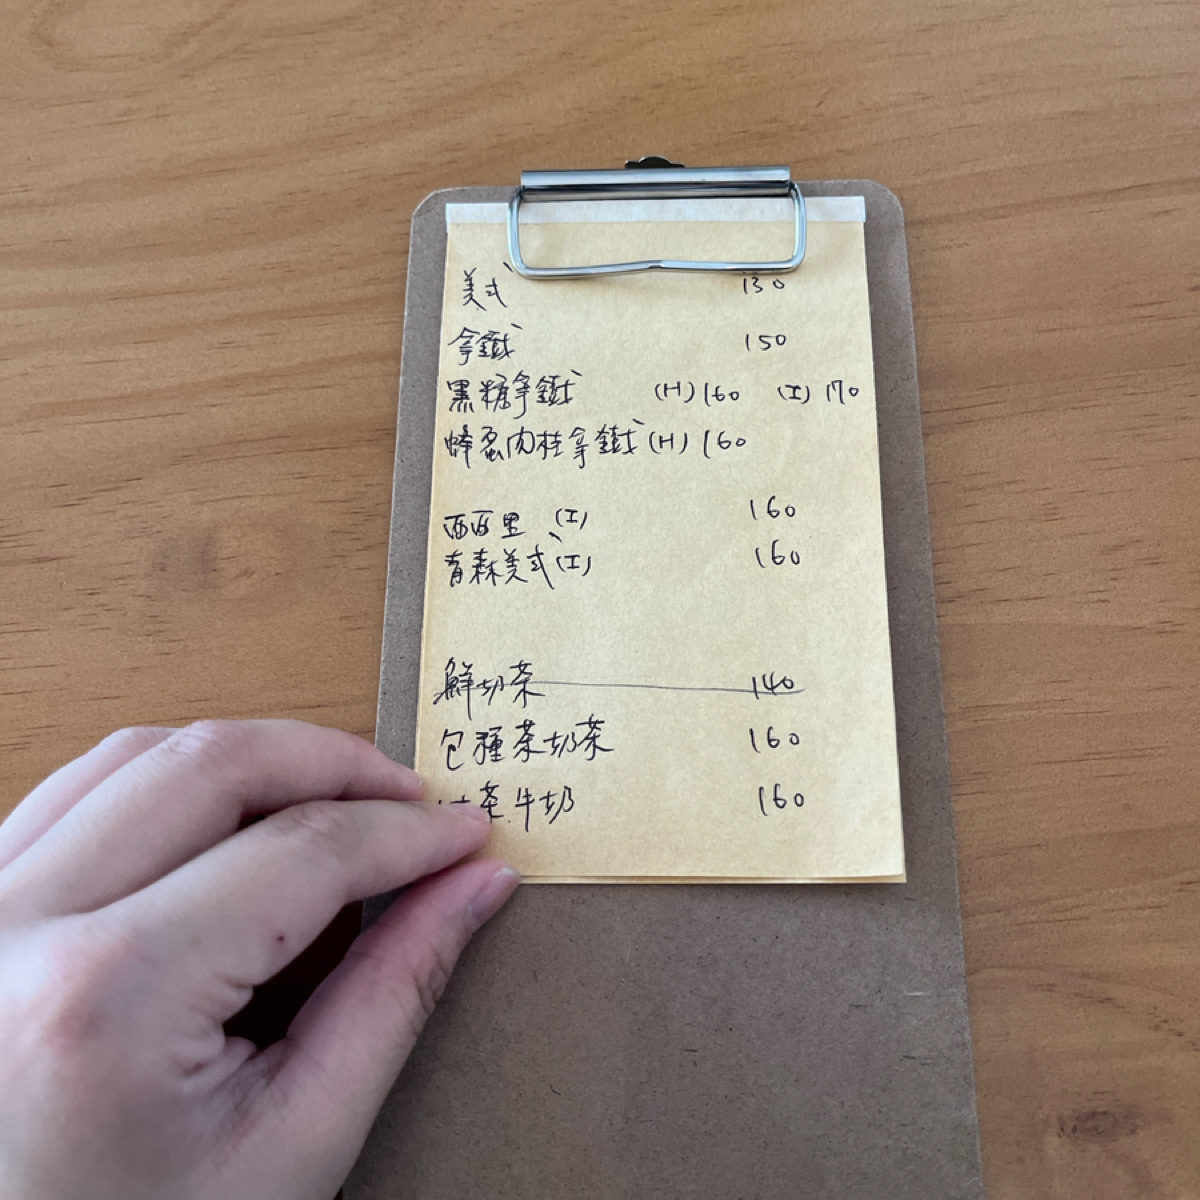 美式 130
拿鐵 150
黑糖拿鐵 (H) 160 (I) 170
蜂蜜肉桂拿鐵 (H) 160
西西里 (I) 160
青森美式 (I) 160
鮮奶茶 140
包種茶奶茶 160
茶牛奶 160